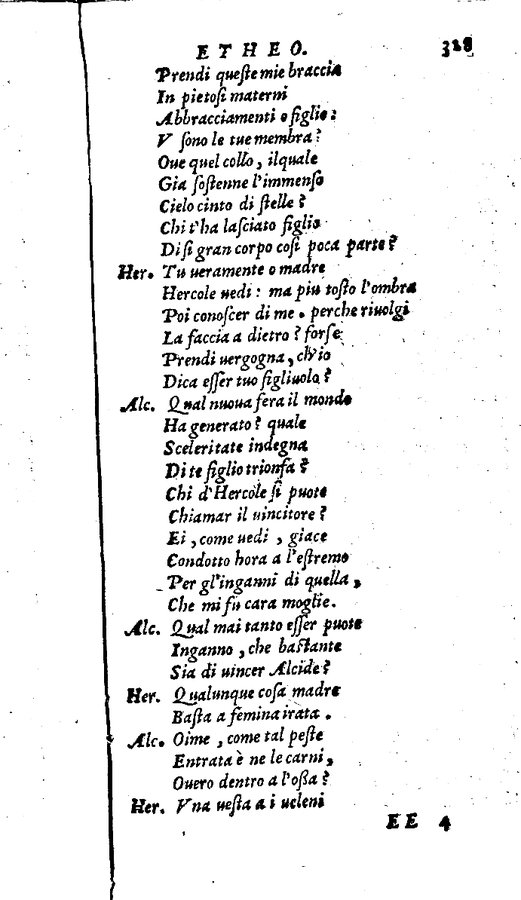 ETHEO. 328
Prendi queſte mie braccia
In pietoſi materni
Abbracciamenti o figlio:
V ſono le tue membra?
Oue quel collo, ilquale
Gia ſoſtenne l'immenſo
Cielo cinto di ſtelle?
Chi t'ha laſciato figlio
Di ſi gran corpo coſi poca parte?
Her. Tu ueramente o madre
Hercole uedi: ma piu toſto l'ombra
Poi conoſcer di me. perche riuolgi
La faccia a dietro? forſe
Prendi uergogna, ch'io
Dica eſſer tuo figliuolo?
Alc. Qual nuoua fera il mondo
Ha generato? quale
Sceleritate indegna
Di te figlio trionfa?
Chi d'Hercole ſi puote
Chiamar il uincitore?
Ei, come uedi, giace
Condotto hora a l'eſtremo
Per gl'inganni di quella,
Che mi fu cara moglie.
Alc. Qual mai tanto eſſer puote
Inganno, che baſtante
Sia di uincer Alcide?
Her. Qualunque coſa madre
Baſta a femina irata.
Alc. Oime, come tal peſte
Entrata è ne le carni,
Ouero dentro a l'oßa?
Her. Vna ueſta a i ueleni
EE 4